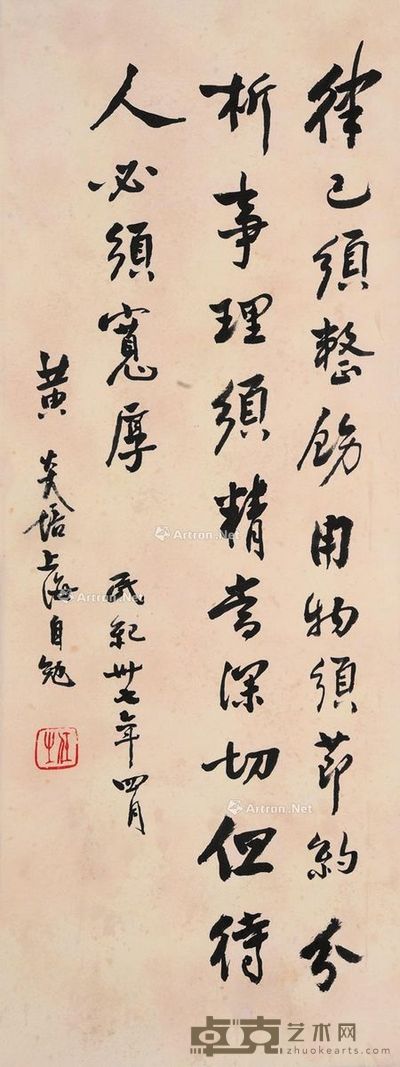 律己須整飭用物須節約分
析事理須精當深切但待
人必須寬厚
民紀卅七年四月
黃炎培上海自勉
任之
Artron.Net
Artron.Net
Artron.Net
Artron.Net
卓克艺术网
zhuokearts.com